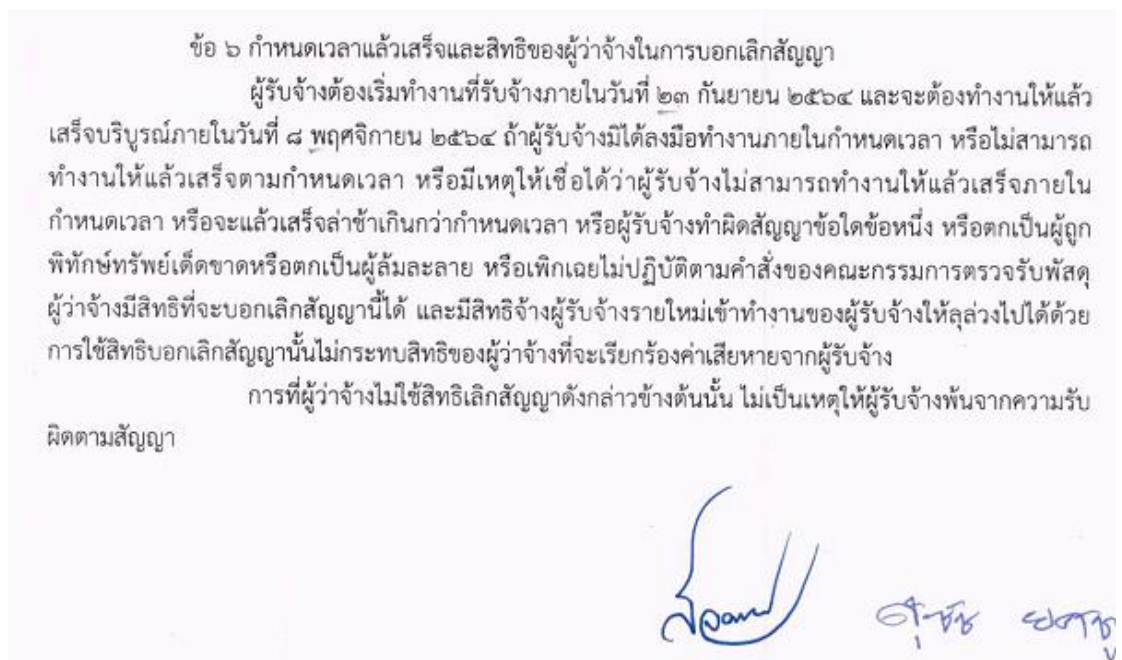 ข้อ ๖ กำหนดเวลาแล้วเสร็จและสิทธิของผู้ว่าจ้างในการบอกเลิกสัญญา
ผู้รับจ้างต้องเริ่มทำงานที่รับจ้างภายในวันที่ ๒๓ กันยายน ๒๕๖๔ และจะต้องทำงานให้แล้ว
เสร็จบริบูรณ์ภายในวันที่ ๘ พฤศจิกายน ๒๕๖๔ ถ้าผู้รับจ้างมิได้ลงมือทำงานภายในกำหนดเวลา หรือไม่สามารถ
ทำงานให้แล้วเสร็จตามกำหนดเวลา หรือมีเหตุให้เชื่อได้ว่าผู้รับจ้างไม่สามารถทำงานให้แล้วเสร็จภายใน
กำหนดเวลา หรือจะแล้วเสร็จล่าช้าเกินกว่ากำหนดเวลา หรือผู้รับจ้างทำผิดสัญญาข้อใดข้อหนึ่ง หรือตกเป็นผู้ถูก
พิทักษ์ทรัพย์เด็ดขาดหรือตกเป็นผู้ล้มละลาย หรือเพิกเฉยไม่ปฏิบัติตามคำสั่งของคณะกรรมการตรวจรับพัสดุ
ผู้ว่าจ้างมีสิทธิที่จะบอกเลิกสัญญานี้ได้ และมีสิทธิจ้างผู้รับจ้างรายใหม่เข้าทำงานของผู้รับจ้างให้ลุล่วงไปได้ด้วย
การใช้สิทธิบอกเลิกสัญญานั้นไม่กระทบสิทธิของผู้ว่าจ้างที่จะเรียกร้องค่าเสียหายจากผู้รับจ้าง
การที่ผู้ว่าจ้างไม่ใช้สิทธิเลิกสัญญาดังกล่าวข้างต้นนั้น ไม่เป็นเหตุให้ผู้รับจ้างพ้นจากความรับ
ผิดตามสัญญา